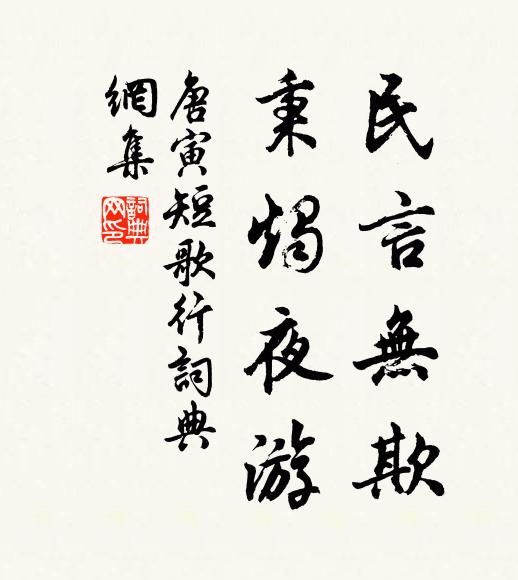 民言無欺
秉燭夜游
唐寅短歌行詞典
網集
詞典网印